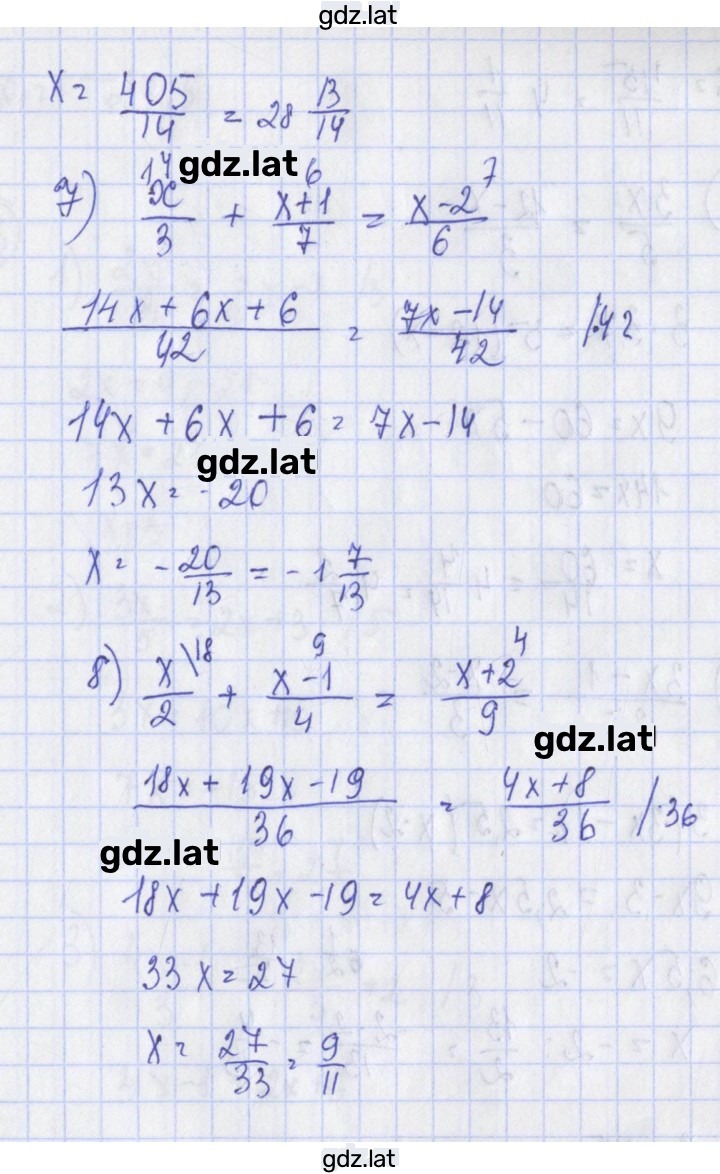 gdz.lat
x = 405/14 = 28 13/14
gdz.lat
7) x/3 \14 + (x+1)/7 \6 = (x-2)/6 \7
(14x + 6x + 6)/42 = (7x - 14)/42 /·42
14x + 6x + 6 = 7x - 14
gdz.lat
13x = -20
x = -20/13 = -1 7/13
8) x/2 \18 + (x-1)/4 \9 = (x+2)/9 \4
gdz.lat
(18x + 19x - 19)/36 = (4x + 8)/36 /·36
gdz.lat
18x + 19x - 19 = 4x + 8
33x = 27
x = 27/33 = 9/11
gdz.lat